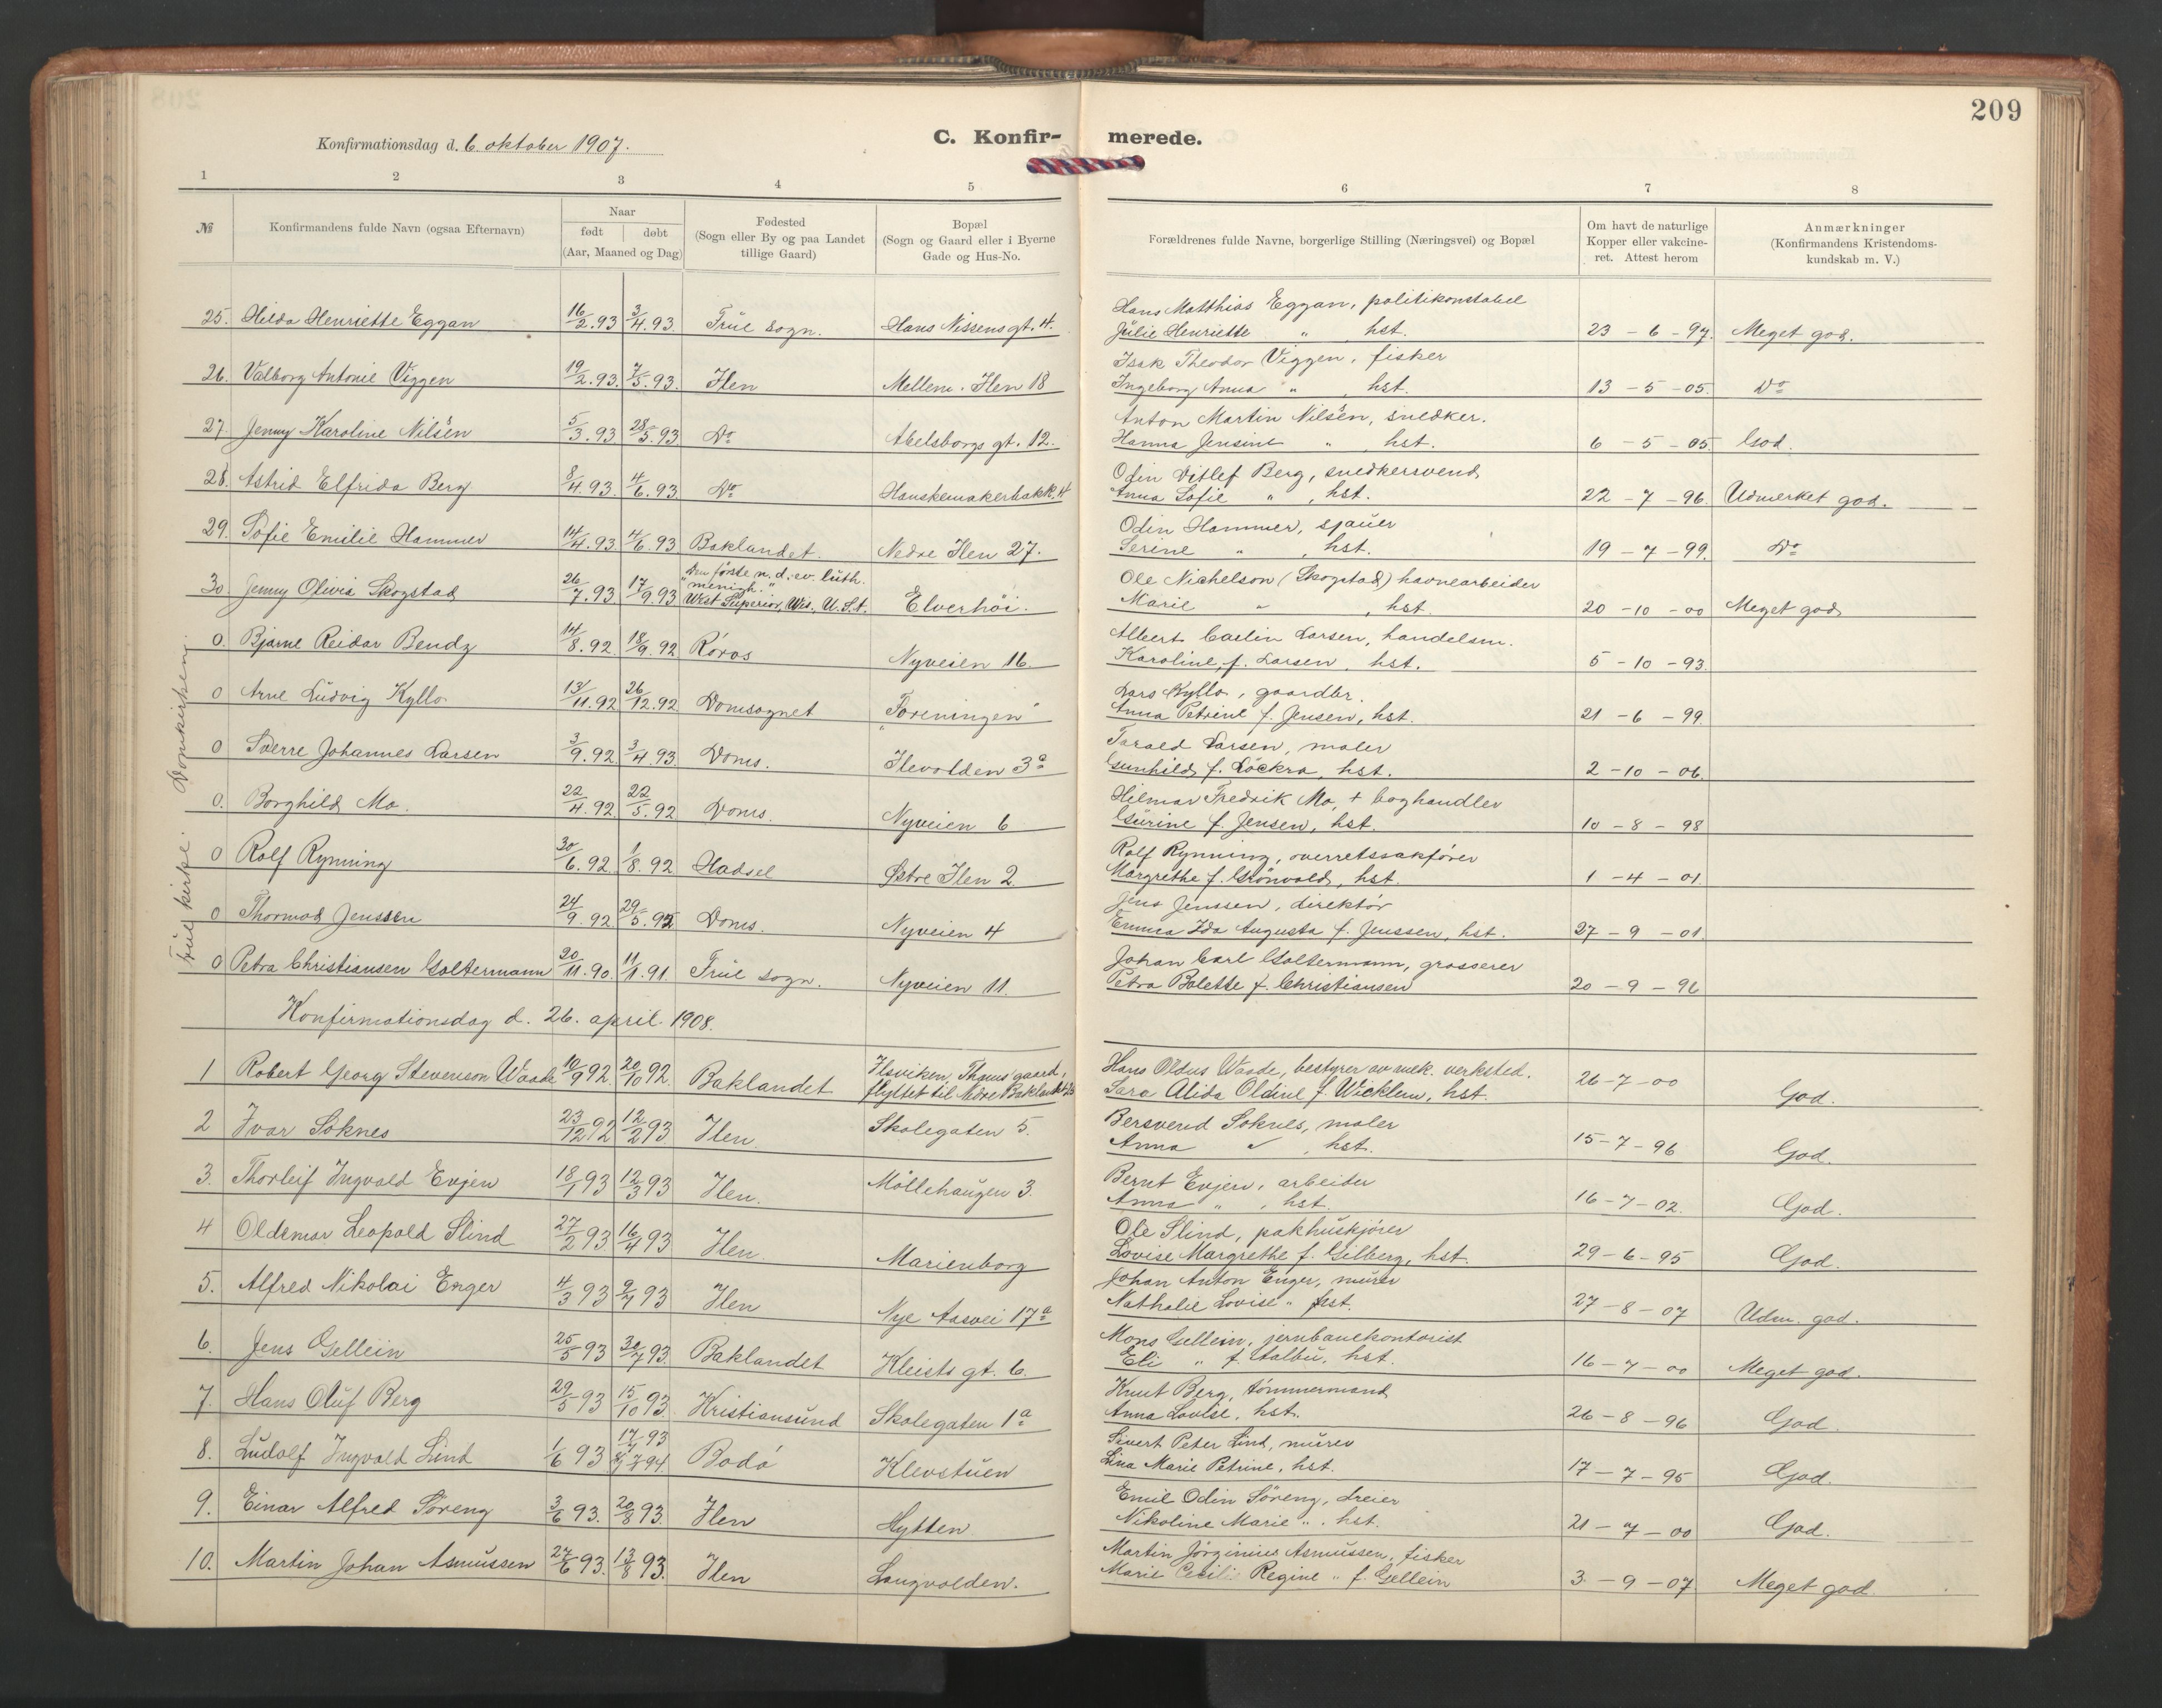 209
Konfirmationsdag d. 6. oktober 1907.
C. Konfir- merede.
1 2 3 4 5 6 7 8
№
Konfirmandens fulde Navn (ogsaa Efternavn)
Naar
født | døbt
(Aar, Maaned og Dag)
Fødested
(Sogn eller By og paa Landet
tillige Gaard)
Bopæl
(Sogn og Gaard eller i Byerne
Gade og Hus-No.
Forældrenes fulde Navne, borgerlige Stilling (Næringsvei) og Bopæl
Om havt de naturlige
Kopper eller vakcine-
ret. Attest herom
Anmærkninger
(Konfirmandens Kristendoms-
kundskab m. V.)
Hans Matthias Eggan, politikonstabel
25. Hilda Henriette Eggan 16/2.93 3/4.93. Frue sogn. Hans Nissens gt. 4. Julie Henriette " , hst. 23-6-97. Meget god.
Isak Theodor Viggen, fisker
26. Valborg Antonie Viggen 19/2.93. 7/5.93. Ilen Mellem-Ilen 18 Ingeborg Anna " , hst. 13-5-05. Do
Anton Martin Nilsen, snedker.
27. Jenny Karoline Nilsen 5/3.93 28/5.93 Do Abelsborgs gt. 12. Hanna Jensine " , hst. 6-5-05. God.
Odin Ditlef Berg, snedkersvend
28. Astrid Elfrida Berg 8/4.93. 4/6.93 Do Hanskemakerbakk. 4 Anna Sofie " , hst. 22-7-96. Udmerket god.
Odin Hammer, sjauer
29. Sofie Emilie Hammer 14/4.93. 4/6.93 Baklandet. Nedre Ilen 27. Serine " , hst. 19-7-99. Do
Den første n. d. ev. luth.
"menigh."
Ole Nichelson (Skogstad) havnearbeider
30. Jenny Olivia Skogstad 26/7.93. 17/9.93 West Superior, Wis., U.S.A. Elverhöi. Marie " , hst. 20-10-00 Meget god
Frue kirke. Domkirken.
Albert Carlin Larsen, handelsm.
0. Bjarne Reidar Bendz 14/8.92 18/9.92 Röros Nyveien 16 Karoline, f. Larsen, hst. 5-10-93.
Lars Kyllo, gaardbr.
0 Arne Ludvig Kyllo. 13/11.92 26/12.92 Domsognet "Foreningen" Anna Petrine f. Jensen, hst. 21-6-99
Tarald Larsen, maler
0 Sverre Johannes Larsen 3/9.92 3/4.93. Doms. Ilevolden 3a Gunhild f. Löckra, hst. 2-10-06.
Hilmar Fredrik Mo, + boghandler
0. Borghild Mo. 22/4.92 22/5.92 Doms. Nyveien 6 Gurine f. Jensen, hst. 10-8-98
Rolf Rynning, overretssakfører
0 Rolf Rynning 30/6.92. 1/8.92 Hadsel Østre Ilen 2 Margrethe f. Grönvold, hst. 1-4-01.
Jens Jenssen, direktör
0 Thormod Jenssen 24/9.92 29/5.92 Doms. Nyveien 4 Emma Ida Augusta f. Jenssen, hst. 27-9-01.
Johan Carl Goltermann, grosserer
0 Petra Christiansen Goltermann 20/11.90. 11/1.91. Frue sogn. Nyveien 11. Petra Bolette f. Christiansen 20-9-96
Konfirmationsdag d. 26. april 1908.
Ilsviken, Thams' gaard, Hans Oldus Waade, bestyrer av mek. verksted.
1 Robert Georg Stevenson Waade 10/9 92. 20/10 92. Baklandet flyttet til Nedre Baklandet Sara Alida Oldine f. Wicklem, hst. 26-7-00 God.
Bersvend Soknes, maler
2 Ivar Soknes 23/12 92 12/2 93 Ilen. Skolegaten 5. Anna " , hst. 15-7-96 God.
Bernt Evjen, arbeider
3. Thorleif Ingvald Evjen 18/1 93 12/3 93 Ilen. Möllehaugen 3. Anna " , hst. 16-7-02. God.
Ole Slind, pakhuskjører
4 Oldemar Leopold Slind 27/2 93 16/4 93 Ilen. Marienborg Lovise Margrethe f. Gilberg, hst. 29-6-95 God.
Johan Anton Enger, murer
5. Alfred Nikolai Enger 4/3 93 9/7 93 Ilen Nye Aasvei 17a Nathalie Lovise " hst. 27-8-07 Udm. god.
Mons Gellein, jernbanekontorist
6. Jens Gellein 25/5 93 30/7 93. Baklandet Kleists gt. 6. Eli " f. Stalbu, hst. 16-7-00 Meget god.
Knut Berg, tömmermand
7. Hans Oluf Berg 29/5 93 15/10 93. Kristiansund Skolegaten 1a Anna Lovise, hst. 26-8-96 God.
Sivert Peter Lind, murer
8. Ludolf Ingvald Lind 1/6 93 Bodö Klevstuen Lina Marie Petrine, hst. 17-7-95 God.
Emil Odin Söreng, dreier
9. Einar Alfred Söreng 3/6 93. 20/8 93. Ilen Hytten Nikoline Marie " , hst. 21-7-00 God.
Martin Jörginius Asmussen, fisker
10. Martin Johan Asmussen 27/6 93. 13/8 93. Ilen Langvolden. Marie Cecilie Regine " f. Gellein 3-9-07 Meget god